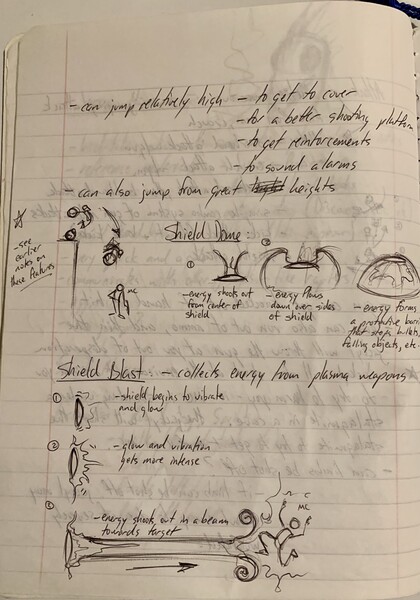 - can jump relatively high - to get to cover
- for a better shooting platform
- to get reinforcements
- to sound alarms
- can also jump from great heights
- see
earlier
notes on
these features
MC
Shield Dome:
①
- energy shoots out
from center of
shield
②
- energy flows
down over sides
of shield
- energy forms
a protective barri
that stops bullets,
falling objects, etc.
Shield Blast: - collects energy from plasma weapons
①
- shield begins to vibrate
and glow
②
- glow and vibration
gets more intense
- energy shoots out in a beam
towards target
MC